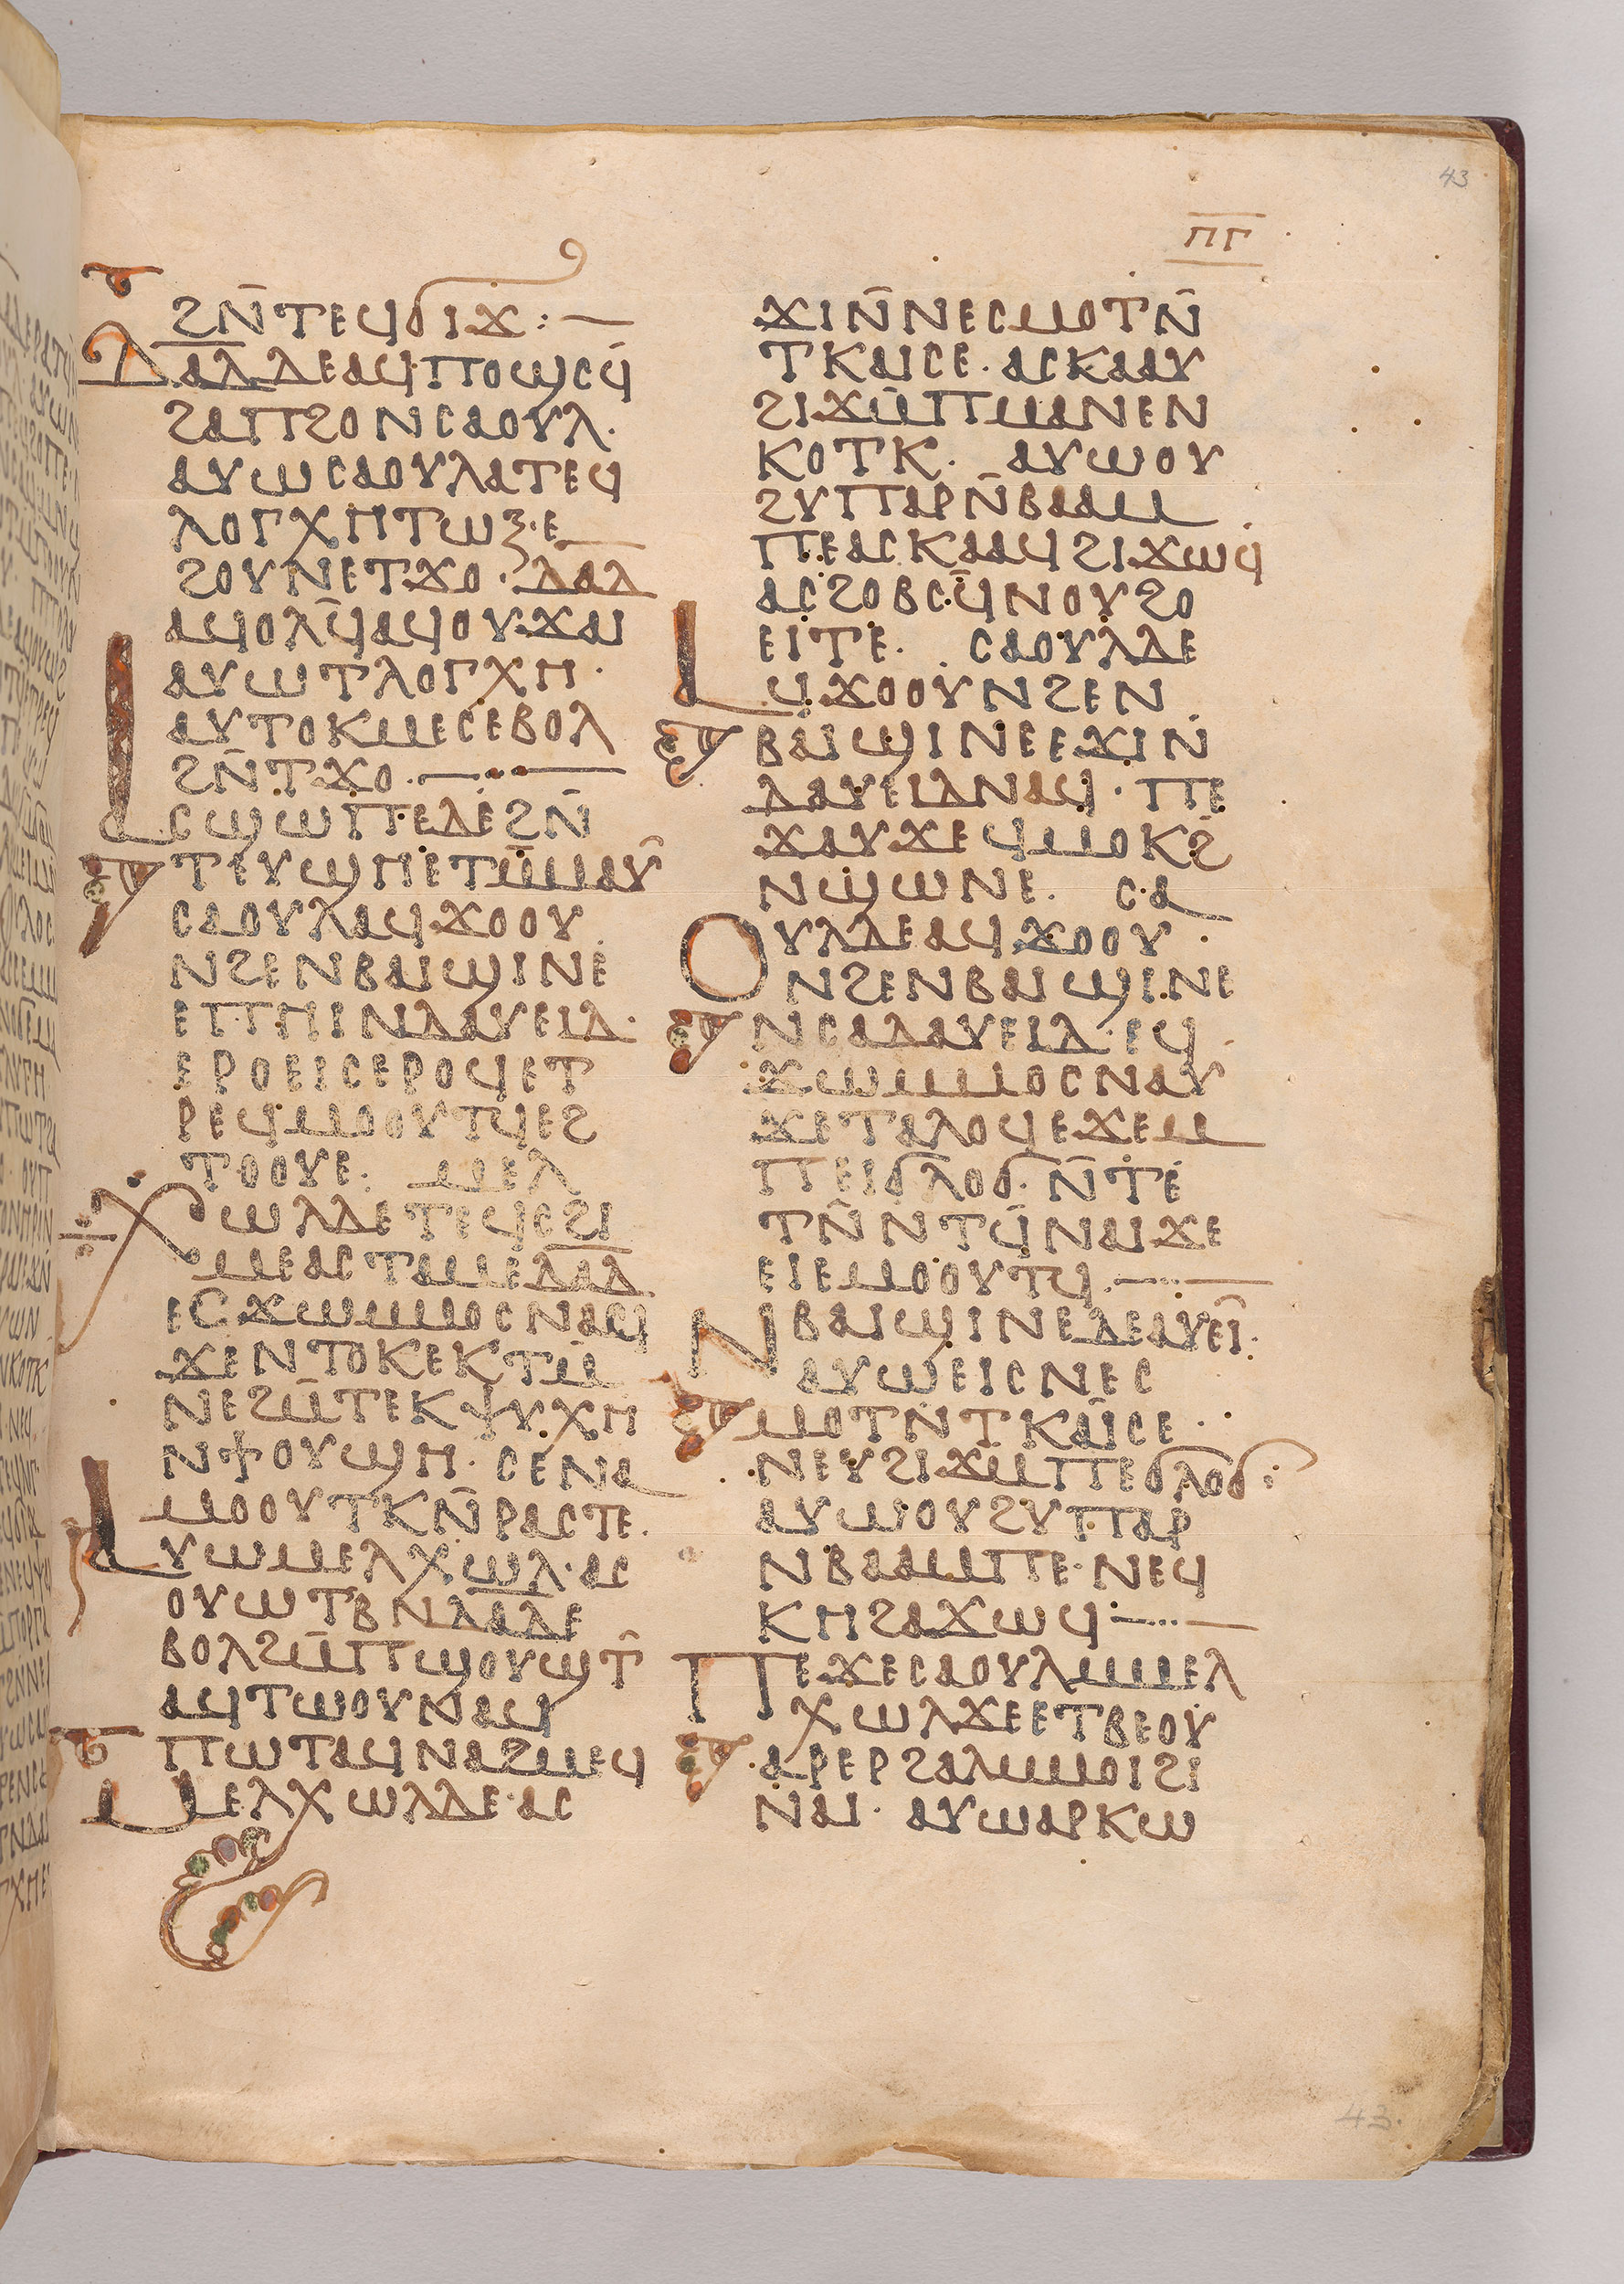 43
ⲡⲅ
ϩⲛ̄ⲧⲉϥϭⲓϫ:—
ⲇⲁⲇⲇⲉⲁϥⲡⲟϣⲥϥ̄
ϩⲁⲡϩⲟⲛⲥⲁⲟⲩⲗ·
ⲁⲩⲱⲥⲁⲟⲩⲗⲁⲧⲉϥ
ⲗⲟⲅⲭⲏⲧⲱⲝ·ⲉ
ϩⲟⲩⲛⲉⲧϫⲟ·ⲇⲁⲇ
ⲁϥⲟⲗϥ̄ⲁϥⲟⲩϫⲁⲓ
ⲁⲩⲱⲧⲗⲟⲅⲭⲏ·
ⲁⲩⲧⲟⲕⲙⲉⲥⲉⲃⲟⲗ
ϩⲛ̄ⲧϫⲟ·—
ⲁⲥϣⲱⲡⲉⲇⲉϩⲛ̄
ⲧⲉⲩϣⲏⲉⲧⲙ̄ⲙⲁⲩ
ⲥⲁⲟⲩⲗⲁϥϫⲟⲟⲩ
ⲛϩⲉⲛⲃⲁⲓϣⲓⲛⲉ
ⲉⲡⲏⲓⲛⲇⲁⲩⲉⲓⲇ·
ⲉⲣⲟⲉⲓⲥⲉⲣⲟϥⲉⲧ
ⲣⲉϥⲙⲟⲟⲩⲧϥⲉϩ
ⲧⲟⲟⲩⲉ· ⲙⲉⲗ
ⲭⲱⲗⲇⲉⲧⲉϥⲥϩⲓ
ⲙⲉⲁⲥⲧⲁⲙⲉⲇⲁⲇ
ⲉⲥϫⲱⲙⲙⲟⲥⲛⲁϥ
ϫⲉⲛⲧⲟⲕⲉⲕⲧⲙ̄
ⲛⲉϩⲙ̄ⲧⲉⲕⲯⲩⲭⲏ
ⲛϯⲟⲩϣⲏ· ⲥⲉⲛⲁ
ⲙⲟⲟⲩⲧⲕⲛ̄ⲣⲁⲥⲧⲉ·
ⲁⲩⲱⲙⲉⲗⲭⲱⲗ·ⲁⲥ
ⲟⲩⲱⲧⲃⲛⲇⲁⲇⲉ
ⲃⲟⲗϩⲙ̄ⲡϣⲟⲩϣⲧ̄
ⲁϥⲧⲱⲟⲩⲛⲁϥ
ⲡⲱⲧⲁϥⲛⲁϩⲙⲉϥ
ⲙⲉⲗⲭⲱⲗⲇⲉ·ⲁⲥ
ϫⲓⲛ̄ⲛⲉⲥⲙⲟⲧⲛ̄
ⲧⲕⲁⲓⲥⲉ·ⲁⲥⲕⲁⲁⲩ
ϩⲓϫⲙ̄ⲡⲙⲁⲛⲉⲛ
ⲕⲟⲧⲕ· ⲁⲩⲱⲟⲩ
ϩⲩⲡⲁⲣⲛ̄ⲃⲁⲁⲙ
ⲡⲉⲁⲥⲕⲁⲁϥϩⲓϫⲱϥ
ⲁⲥϩⲟⲃⲥϥ̄ⲛⲟⲩϩⲟ
ⲉⲓⲧⲉ· ⲥⲁⲟⲩⲗⲇⲉ
ⲁϥϫⲟⲟⲩⲛϩⲉⲛ
ⲃⲁⲓϣⲓⲛⲉⲉϫⲓⲛ
ⲇⲁⲩⲉⲓⲇⲛⲁϥ·ⲡⲉ
ϫⲁⲩϫⲉϥⲙⲟⲕϩ
ⲛϣⲱⲛⲉ· ⲥⲁ
ⲟⲩⲗⲇⲉⲁϥϫⲟⲟⲩ·
ⲛϩⲉⲛⲃⲁⲓϣⲓⲛⲉ
ⲛⲥⲁⲇⲁⲩⲉⲓⲇ·ⲉϥ
ϫⲱⲙⲙⲟⲥⲛⲁⲩ
ϫⲉⲧⲁⲗⲟϥⲉϫⲉⲙ
ⲡⲉⲓϭⲗⲟϭ·ⲛ̄ⲧⲉ
ⲧⲛ̄ⲛⲧϥ̄ⲛⲁⲓϫⲉ
ⲉⲓⲉⲙⲟⲟⲩⲧϥ·—
ⲛⲃⲁⲓϣⲓⲛⲉⲇⲉⲁⲩⲉⲓ·
ⲁⲩⲱⲉⲓⲥⲛⲉⲥ
ⲙⲟⲧⲛ̄ⲧⲕⲁⲓⲥⲉ·
ⲛⲉⲩϩⲓϫⲙ̄ⲡⲉϭⲗⲟϭ:
ⲁⲩⲱⲟⲩϩⲩⲡⲁⲣ
ⲛⲃⲁⲁⲙⲡⲉ·ⲛⲉϥ
ⲕⲏϩⲁϫⲱϥ·—
ⲡⲉϫⲉⲥⲁⲟⲩⲗⲙⲙⲉⲗ
ⲭⲱⲗϫⲉⲉⲧⲃⲉⲟⲩ
ⲁⲣⲉⲣϩⲁⲗⲙⲙⲟⲓϩⲓ
ⲛⲁⲓ· ⲁⲩⲱⲁⲣⲕⲱ
43.